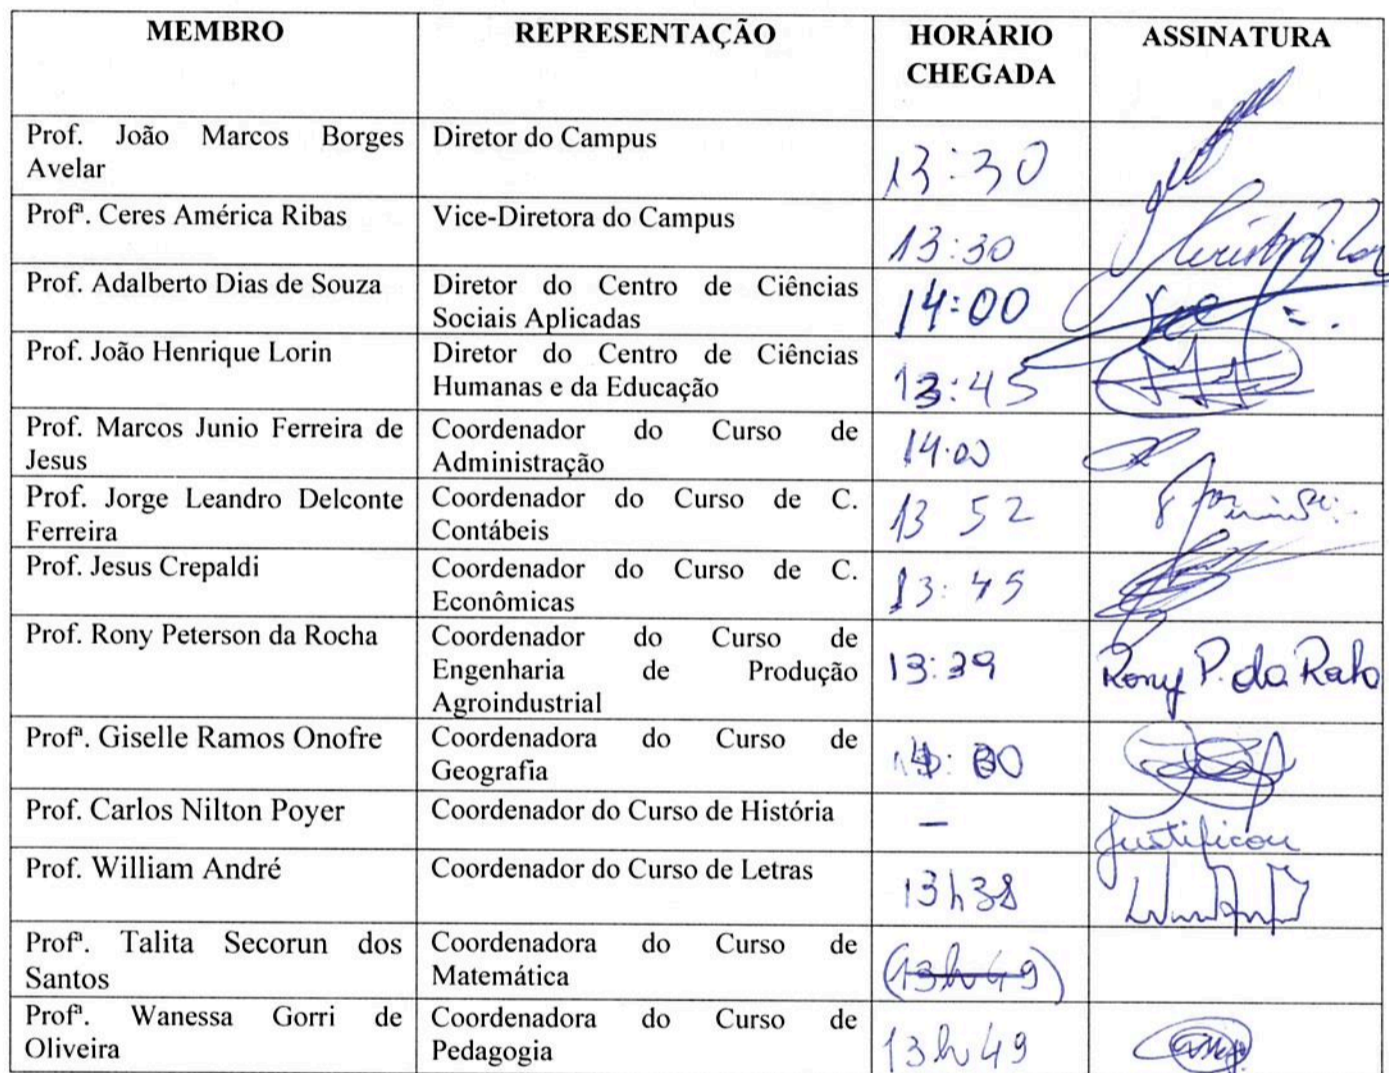 MEMBRO REPRESENTAÇÃO HORÁRIO ASSINATURA
CHEGADA
Prof. João Marcos Borges Diretor do Campus
Avelar 13:30
Profª. Ceres América Ribas Vice-Diretora do Campus
13:30
Prof. Adalberto Dias de Souza Diretor do Centro de Ciências 14:00
Sociais Aplicadas
Prof. João Henrique Lorin Diretor do Centro de Ciências
Humanas e da Educação 13:45
Prof. Marcos Junio Ferreira de Coordenador do Curso de 14:00
Jesus Administração
Prof. Jorge Leandro Delconte Coordenador do Curso de C. 13 52
Ferreira Contábeis
Prof. Jesus Crepaldi Coordenador do Curso de C. 13:45
Econômicas
Prof. Rony Peterson da Rocha Coordenador do Curso de
Engenharia de Produção 13:39 Rony P. da Rocha
Agroindustrial
Profª. Giselle Ramos Onofre Coordenadora do Curso de
Geografia
Prof. Carlos Nilton Poyer Coordenador do Curso de História – Justificou
Prof. William André Coordenador do Curso de Letras 13h38
Profª. Talita Secorun dos Coordenadora do Curso de
Santos Matemática (13h49)
Profª. Wanessa Gorri de Coordenadora do Curso de
Oliveira Pedagogia 13h49